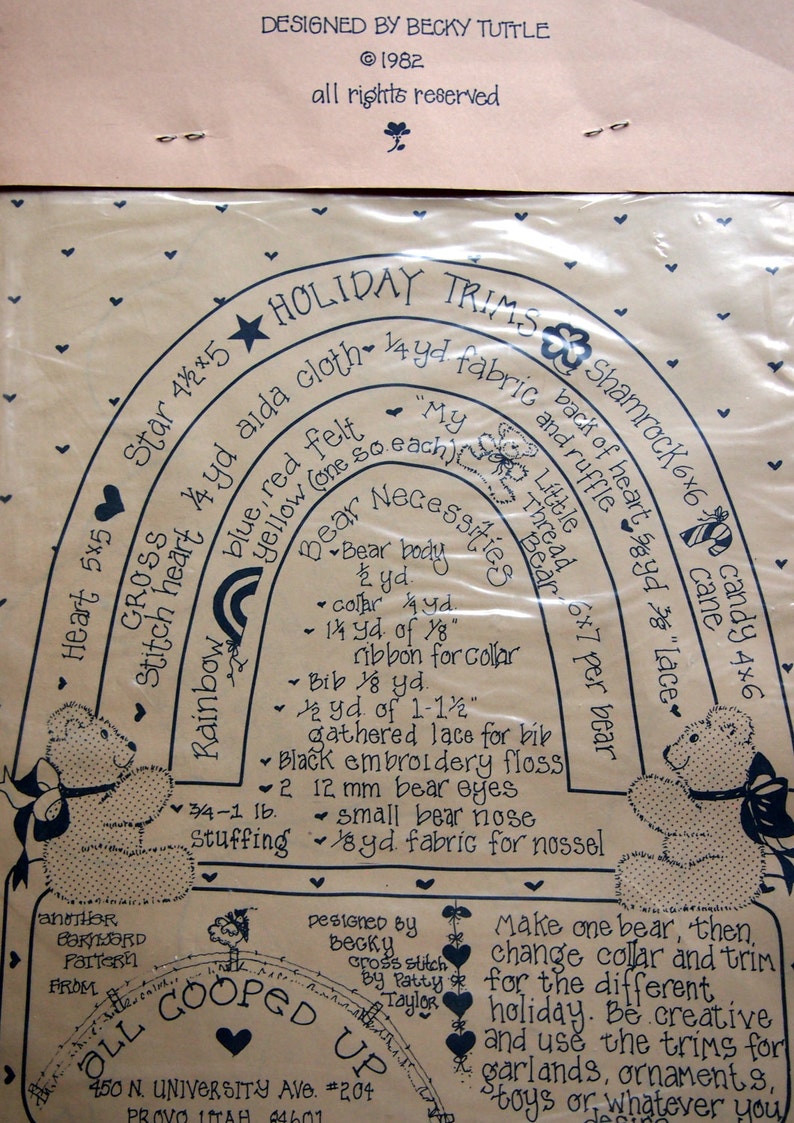 DESIGNED BY BECKY TUTTLE
©1982
all rights reserved
HOLIDAY TRIMS
Heart 5x5
Star 4½x5
Shamrock 6x6
candy cane 4x6
CROSS
Stitch heart
¼ yd aida cloth
¼ yd. fabric
back of heart
and ruffle
⅝ yd ⅜" lace
Rainbow
blue, red felt
yellow (one sq. each)
"My
Little
Thread
Bear"
6x7 per bear
Bear Necessities
Bear body
½ yd.
collar ¼ yd.
1¼ yd. of ⅛"
ribbon for collar
Bib ⅛ yd.
½ yd. of 1-1½"
gathered lace for bib
Black embroidery floss
2 12 mm bear eyes
¾-1 lb.
stuffing
small bear nose
⅛ yd. fabric for nossel
another
BARNYARD
PATTERN
FROM
ALL COOPED UP
450 N. UNIVERSITY AVE. #204
PROVO UTAH 84601
DESIGNED BY
BECKY
CROSS STITCH
BY PATTY
TAYLOR
Make one bear, then
change collar and trim
for the different
holiday. Be creative
and use the trims for
garlands, ornaments,
toys or whatever you
desire